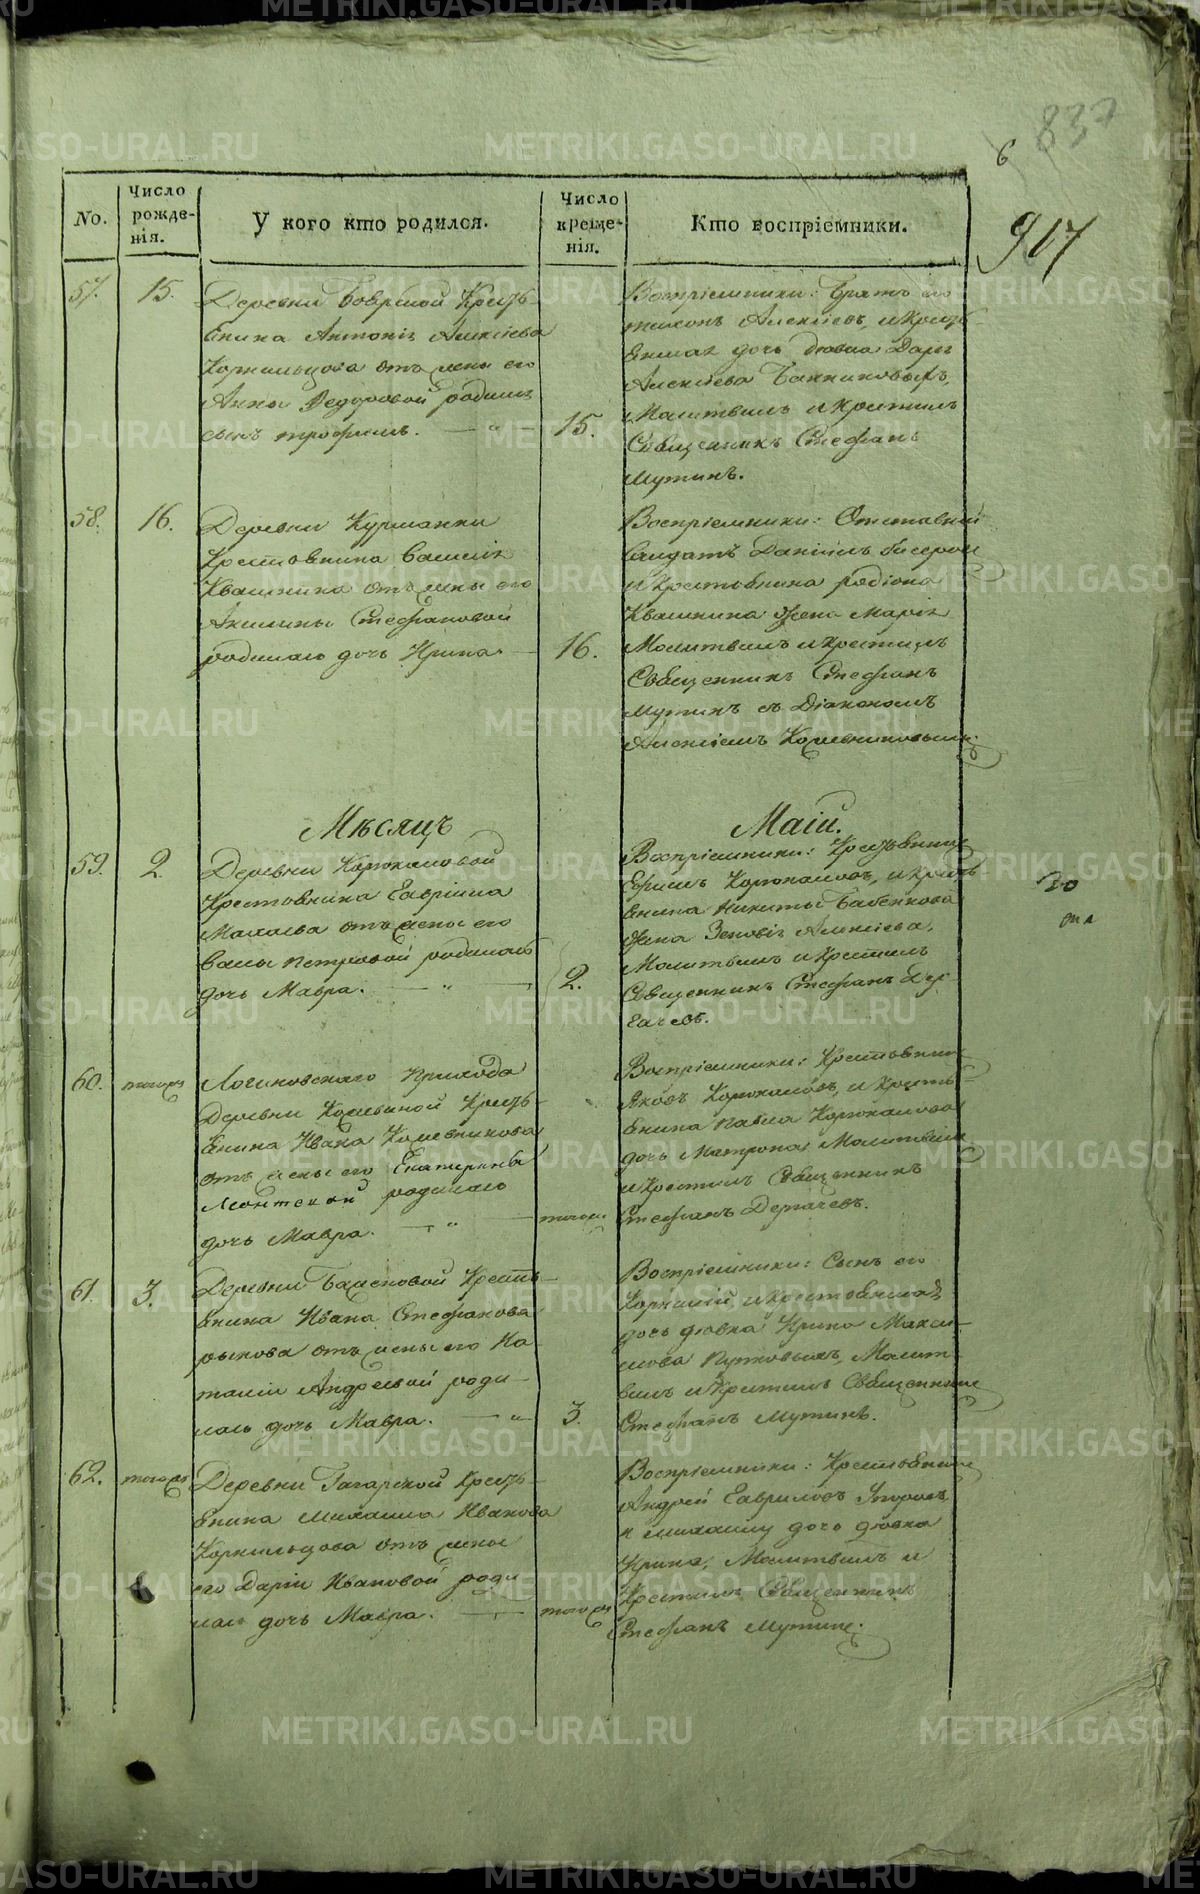 6 837
917
No.
Число
рожде-
нія.
У кого кто родился.
Число
креще-
нія.
Кто воспріемники.
57.
15.
Деревни Бобровой Кресть-
янина Антонія Алексіева
Корнильцова отъ жены его
Анны Федоровой родился
сынъ трофимъ.
15.
Воспріемники: Братъ его
тихонъ Алексіевъ, и Кресть-
янина дочь дѣвка Дарья
Алексіева Банниковыхъ,
Молитвилъ и Крестилъ
Священникъ Стефанъ
Мутинъ.
58.
16.
Деревни Курманки
Крестьянина Василія
Квашнина отъ жены его
Акилины Стефановой
родилась дочь Ирина.
16.
Воспріемники: Отставный
Салдатъ Даніилъ
и Крестьянина родіона
Квашнина жена Марія
Молитвилъ и Крестилъ
Священникъ Стефанъ
Мутинъ съ Діакономъ
Алексіемъ Кожевниковымъ.
Мѣсяцъ
Маій.
59.
2.
Деревни Корюкаловой
Крестьянина Гавріила
Махаева отъ жены его
Вассы петровой родилась
дочь Мавра.
2.
Воспріемники: Крестьянинъ
Ефимъ Корюкаловъ, и Кресть
янина Никиты Бабенкова
жена Зеновія Алексіева,
Молитвилъ и Крестилъ
Священникъ Стефанъ Дер-
гачевъ.
60.
тогожъ
Логиновскаго Прихода
Деревни Кожевиной Кресть-
янина Ивана Кожевникова
отъ жены его Екатерины
родилась
дочь Мавра.
тогожъ
Воспріемники: Крестьянинъ
Яковъ Корюкаловъ, и Кресть
янина павла Корюкалова
дочь Матрона, Молитвилъ
и Крестилъ Священникъ
Стефанъ Дергачевъ.
61.
3.
Деревни Баженовой Кресть-
янина Ивана Стефанова
рыкова отъ жены его На
таліи Андреевой роди-
лась дочь Мавра.
3.
Воспріемники: Сынъ его
Корнилій, и Крестьянина
дочь дѣвка Ирина Макси-
мова Путковыхъ, Молит-
вилъ и Крестилъ Священникъ
Стефанъ Мутинъ.
62.
тогожъ
Деревни Гагарской Кресть-
янина Михаила Иванова
Корнильцова отъ жены
его Даріи Ивановой роди
лась дочь Мавра.
тогожъ
Воспріемники: Крестьянинъ
Андрей Гавриловъ
и Михаилу дочь дѣвка
Ирина, Молитвилъ и
Крестилъ Священникъ
Стефанъ Мутинъ.
METRIKI.GASO-URAL.RU